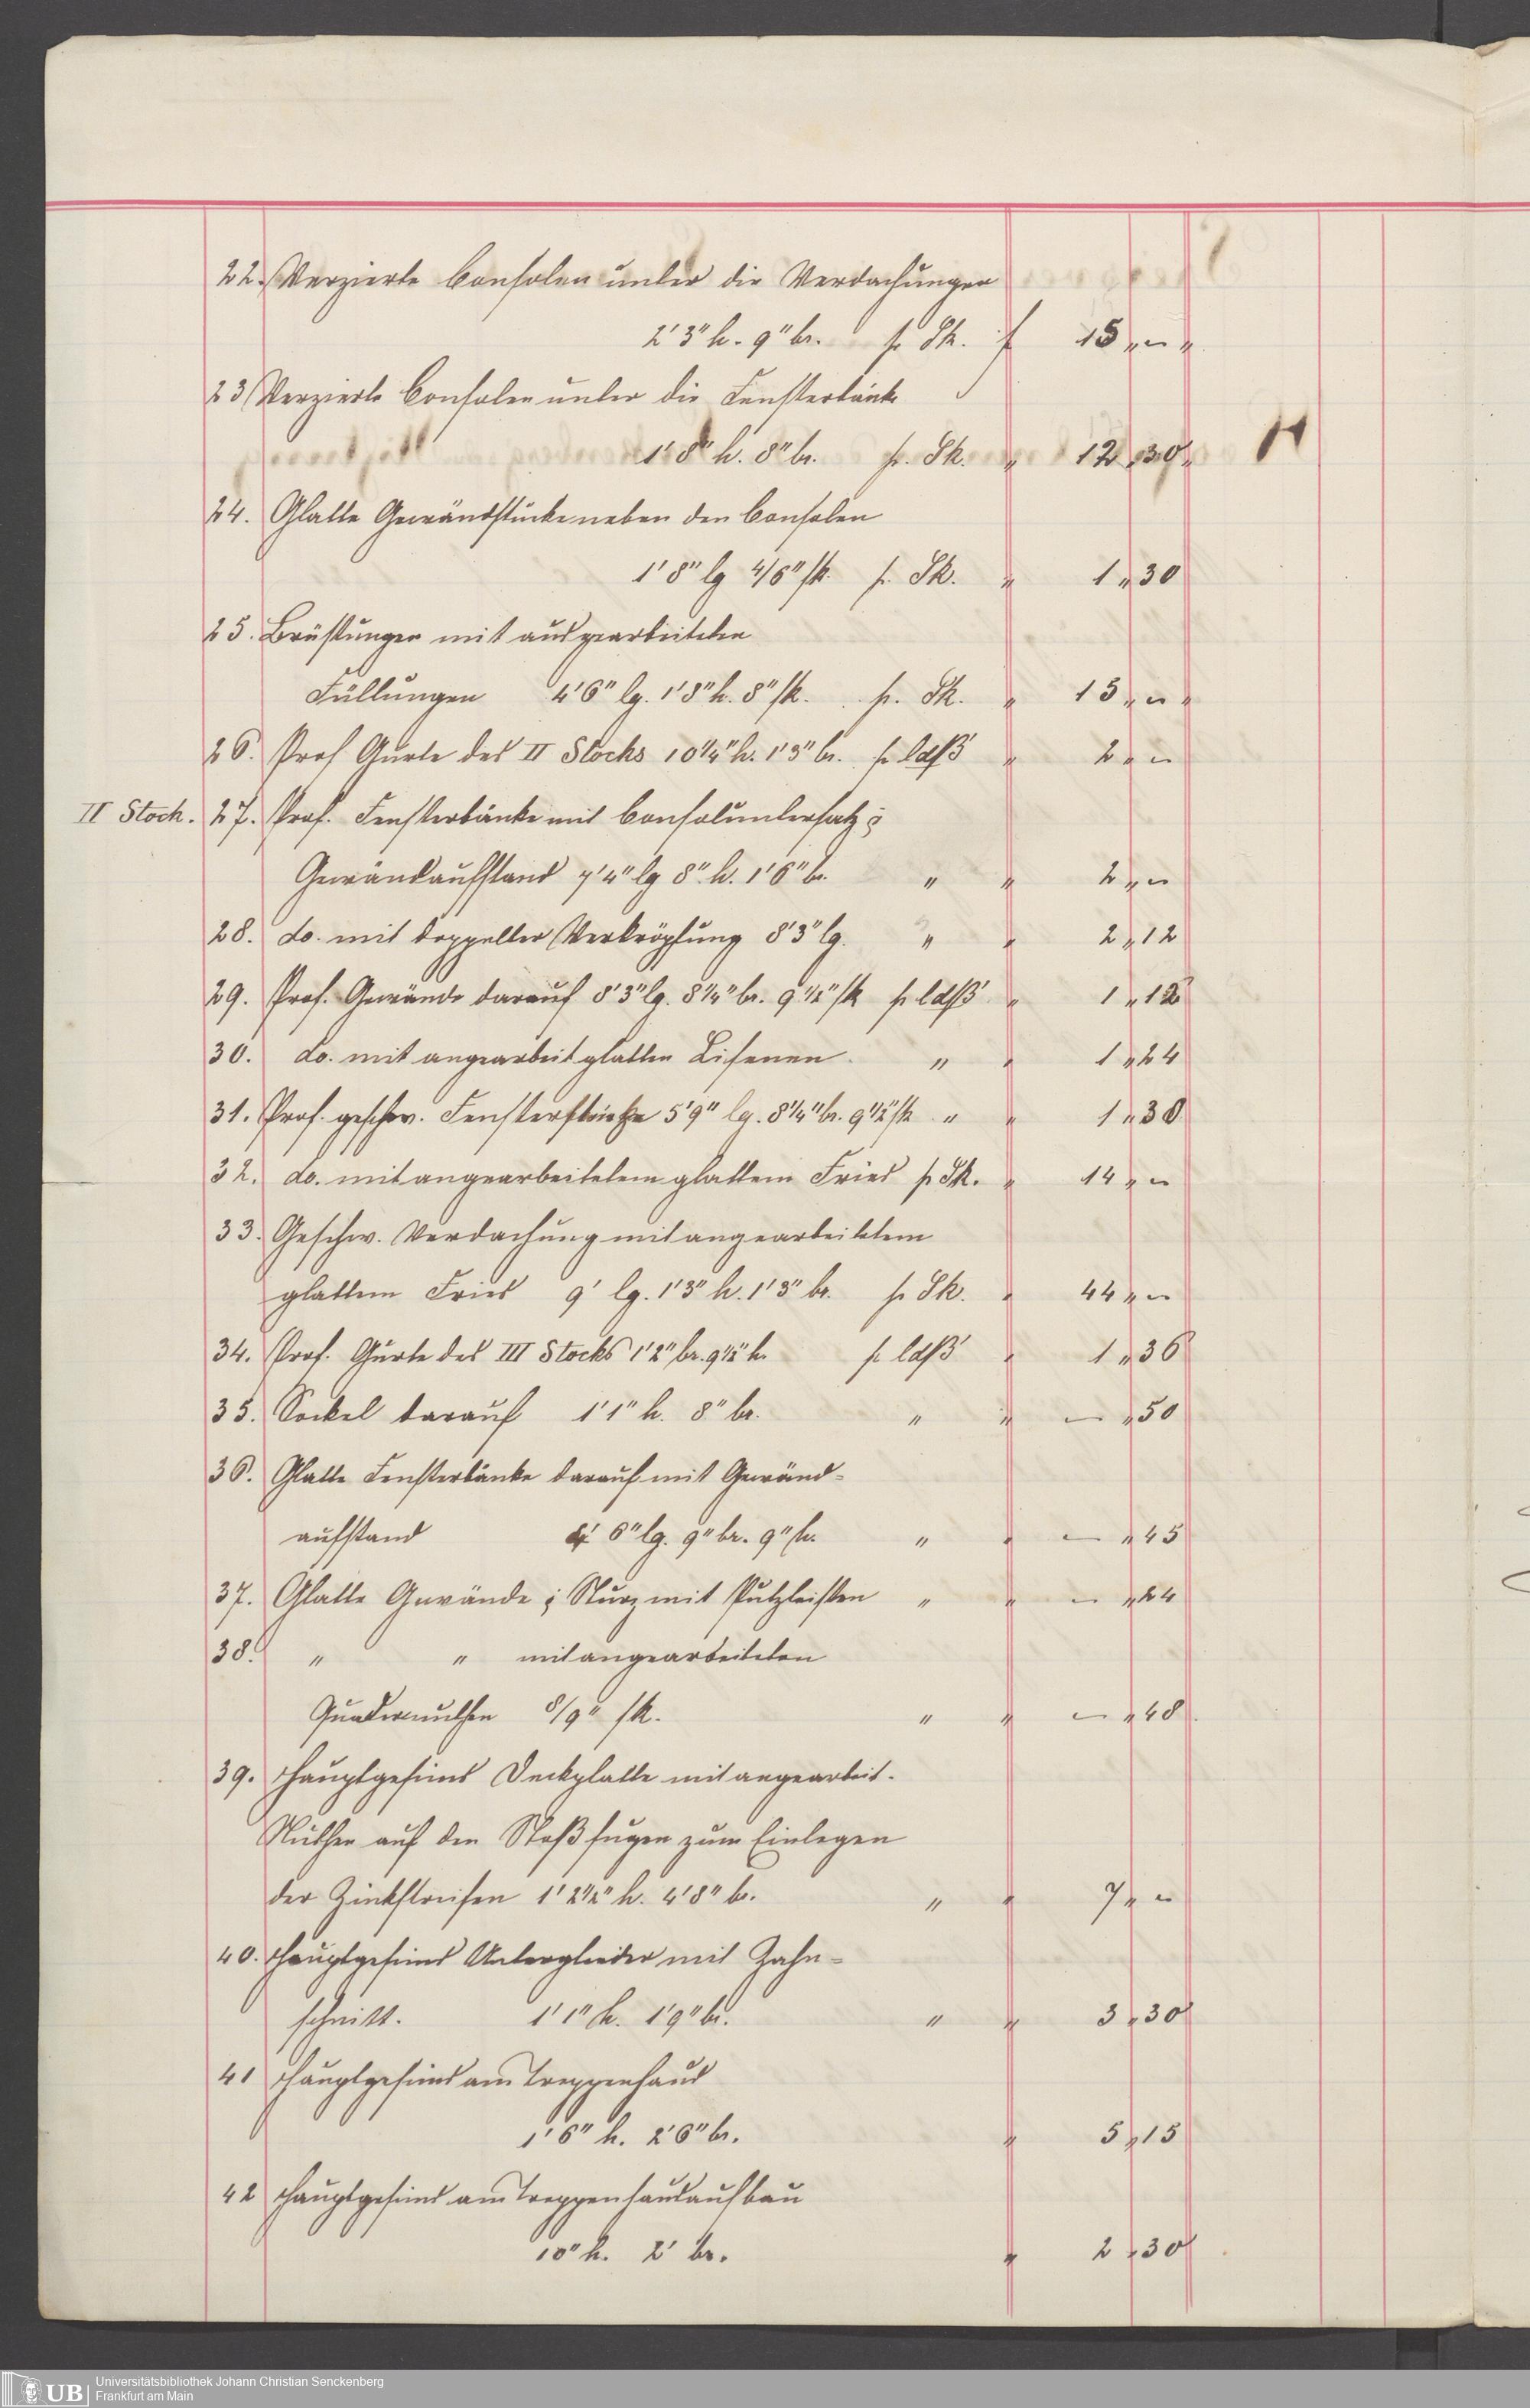 22. Verzierte Consolen unter die Verdachungen
2' 3" h. 9" br. pr Stk. f 15 " – "
23 Verzierte Consolen unter die Fensterbänke
1' 8" h. 8" br. pr. Stk. " 12 " 30 "
24. Glatte Gewändstücke neben den Consolen
1' 8" lg 4/6" stk. pr. Stk. " 1 " 30
25. Brüstungen mit ausgearbeiteten
Füllungen 4' 6" lg. 1' 8" h. 8" stk. pr. Stk. " 15 " – "
26. Prof Gurte des II Stocks 10 1/4" h. 1' 3" br. pr ldfß' " 2 " –
II Stock. 27. Prof. Fensterbänke mit Consoluntersatz &
Gewändaufstand 7' 4" lg 8" h. 1' 6" br. " " 2 " –
28. do. mit doppelter Verkröpfung 8' 3" lg. " " 2 " 12
29. Prof. Gewände darauf 8' 3" lg. 8 1/4" br. 9 1/2" stk pr ldfß' " 1 " 12
30. do. mit angearbeit glatten Lisenen. " " 1 " 24
31. Prof. geschw. Fensterstürze 5' 9" lg. 8 1/4" br. 9 1/2" stk " " 1 " 30
32. do. mit angearbeitetem glattem Fries pr Stk. " 14 " –
33. Geschw. Verdachung mit angearbeitetem
glattem Fries 9' lg. 1' 3" h. 1' 3" br. pr Stk. " 44 " –
34. Prof. Gurte des III Stocks 1' 2" br. 9 1/2" h. pr ldfß' " 1 " 36
35. Sockel darauf 1' 1" h. 8" br. " " – " 50
36. Glatte Fensterbänke darauf mit Gewänd-
aufstand 4' 6" lg. 9" br. 9" h. " " – " 45
37. Glatte Gewände & Sturz mit Putzleisten " " – " 24
38. " " mit angearbeiteten
Quadernuthen 8/9" stk. " " – " 48
39. Hauptgesims Deckplatte mit angearbeit.
Nuthen auf den Stoßfugen zum Einlegen
der Zinkstreifen 1' 2 1/2" h. 4' 8" br. " " 7 " –
40. Hauptgesims Unterglieder mit Zahn-
schnitt. 1' 1" h. 1' 9" br. " " 3 " 30
41 Hauptgesims am Treppenhaus
1' 6" h. 2' 6" br. " 5 " 15
42 Hauptgesims am Treppenhausaufbau
10" h. 2' br. " 2 " 30
UB
Universitätsbibliothek Johann Christian Senckenberg
Frankfurt am Main